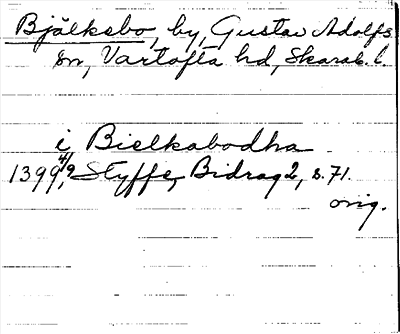 Bjälksbo, by, Gustav Adolfs
sn, Vartofta hd, Skarab. l.
i Bielkabodha
1399 4/9, Styffe, Bidrag 2, s. 71.
orig.